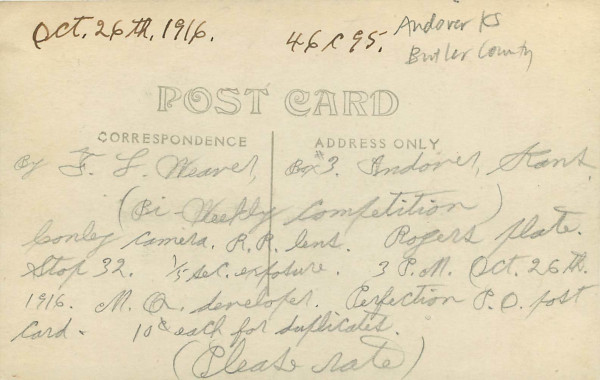 Oct. 26th, 1916.
46 c 95.
Andover KS
Butler County
POST CARD
CORRESPONDENCE
ADDRESS ONLY
By F. L. Weaver, Box 3. Andover, Kans.
(Bi-Weekly Competition)
Conley camera. R.R. lens. Rogers plate.
Stop 32. 1/5 sec. exposure. 3 P.M. Oct. 26th.
1916. M.Q. developer. Perfection P.O. post
card. 10¢ each for duplicates.
(Please rate)